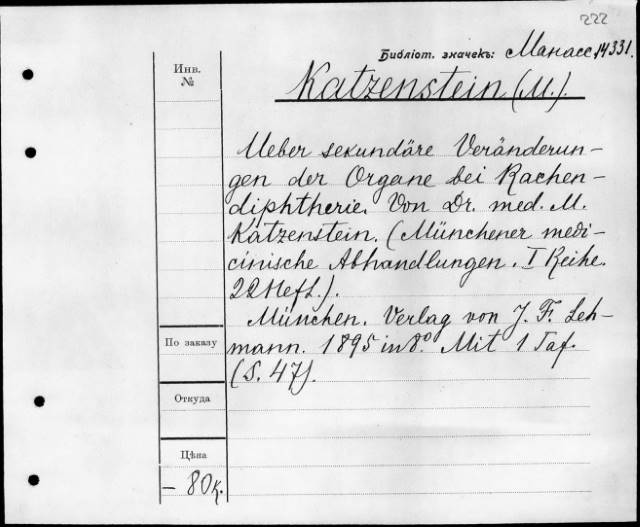 222
Библіот. значекъ: Манасс. 14331.
Инв.
№
Katzenstein (M.).
Ueber sekundäre Veränderun-
gen der Organe bei Rachen-
diphtherie. Von Dr. med. M.
Katzenstein. (Münchener medi-
cinische Abhandlungen. I Reihe.
22 Heft.).
München. Verlag von J. F. Leh-
mann. 1895 in 8º. Mit 1 Taf.
(S. 47).
По заказу
Откуда
Цѣна
— 80 к.